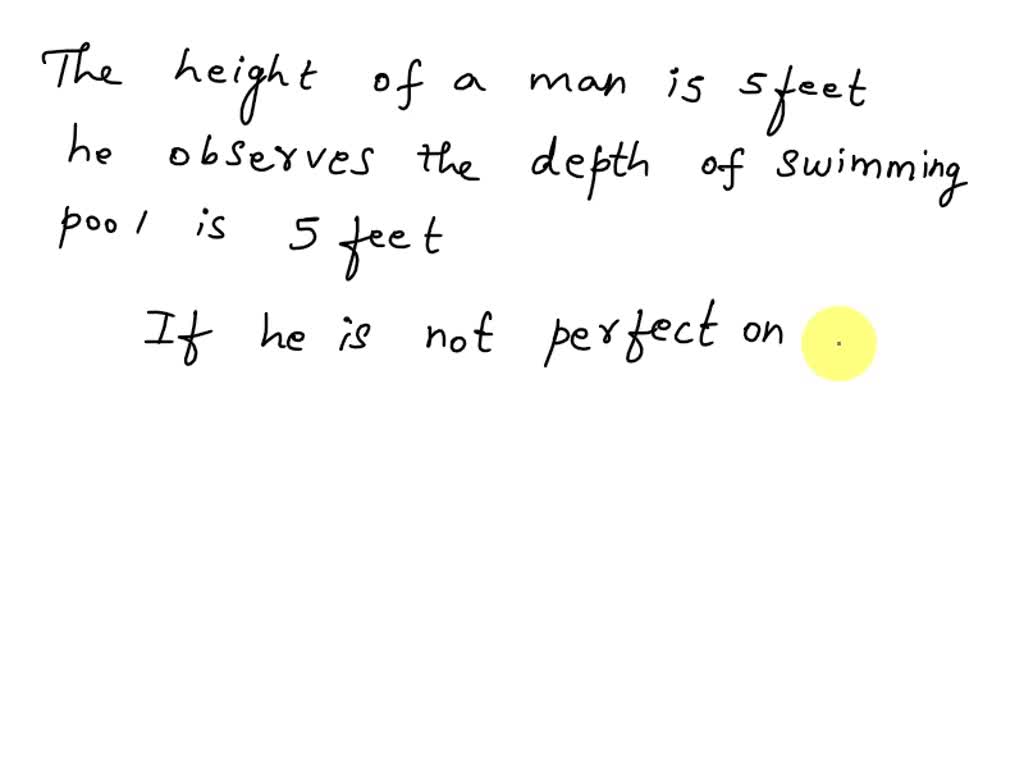 The height of a man is 5 feet
he observes the depth of swimming
pool is 5 feet
If he is not perfect on